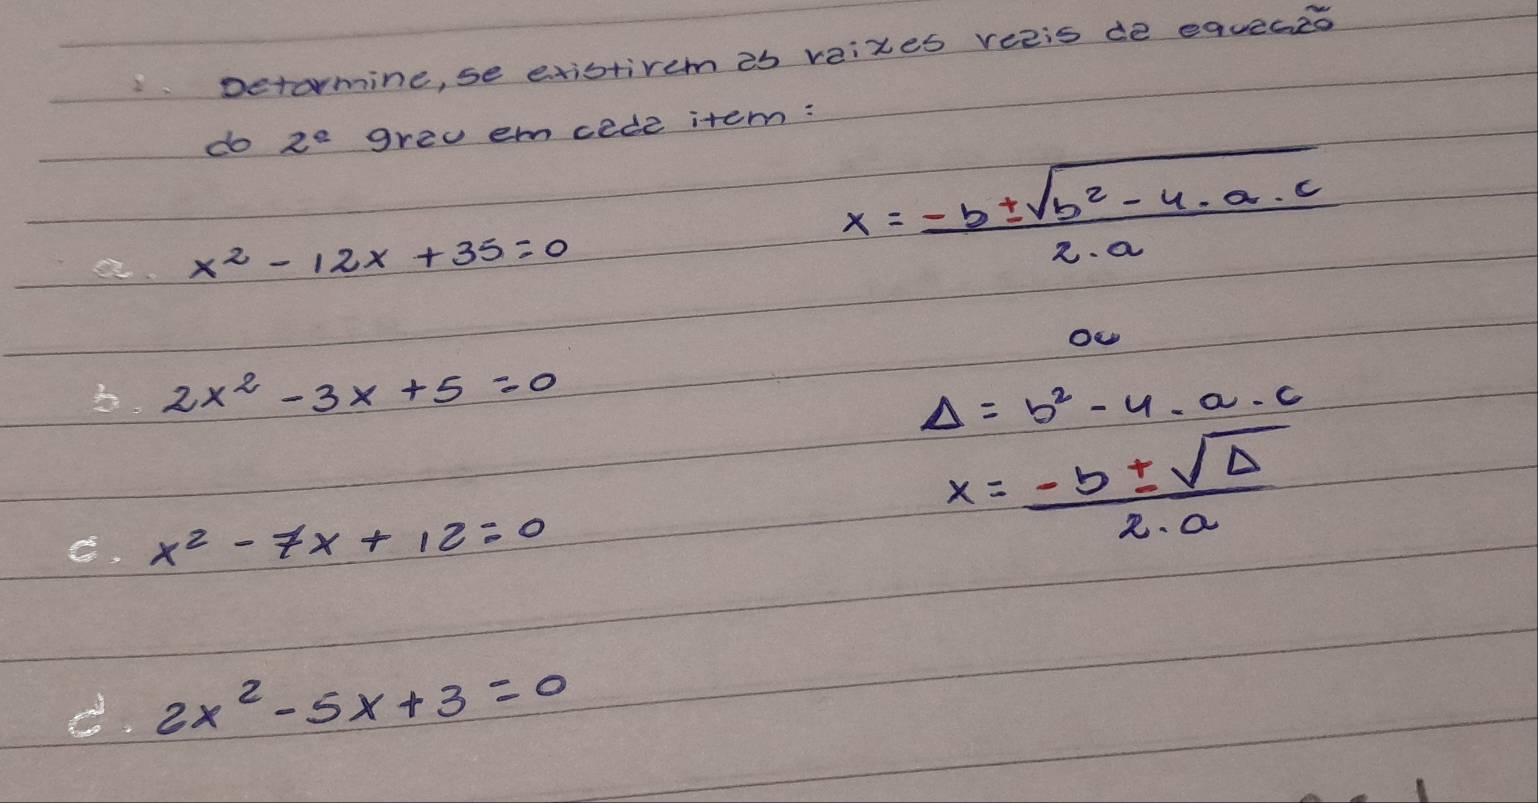 Determine, se existirem as raixes reais da equação
do 2º grau em cada item:
a. x² - 12x + 35 = 0
x = -b ± √b² - 4 . a . c
2 . a
ou
b. 2x² - 3x + 5 = 0
Δ = b² - 4 . a . c
x = -b ± √Δ
2 . a
c. x² - 7x + 12 = 0
d. 2x² - 5x + 3 = 0